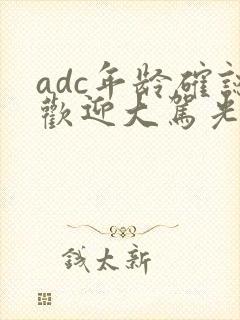 adc年龄確認
歡迎大駕光
錢太新